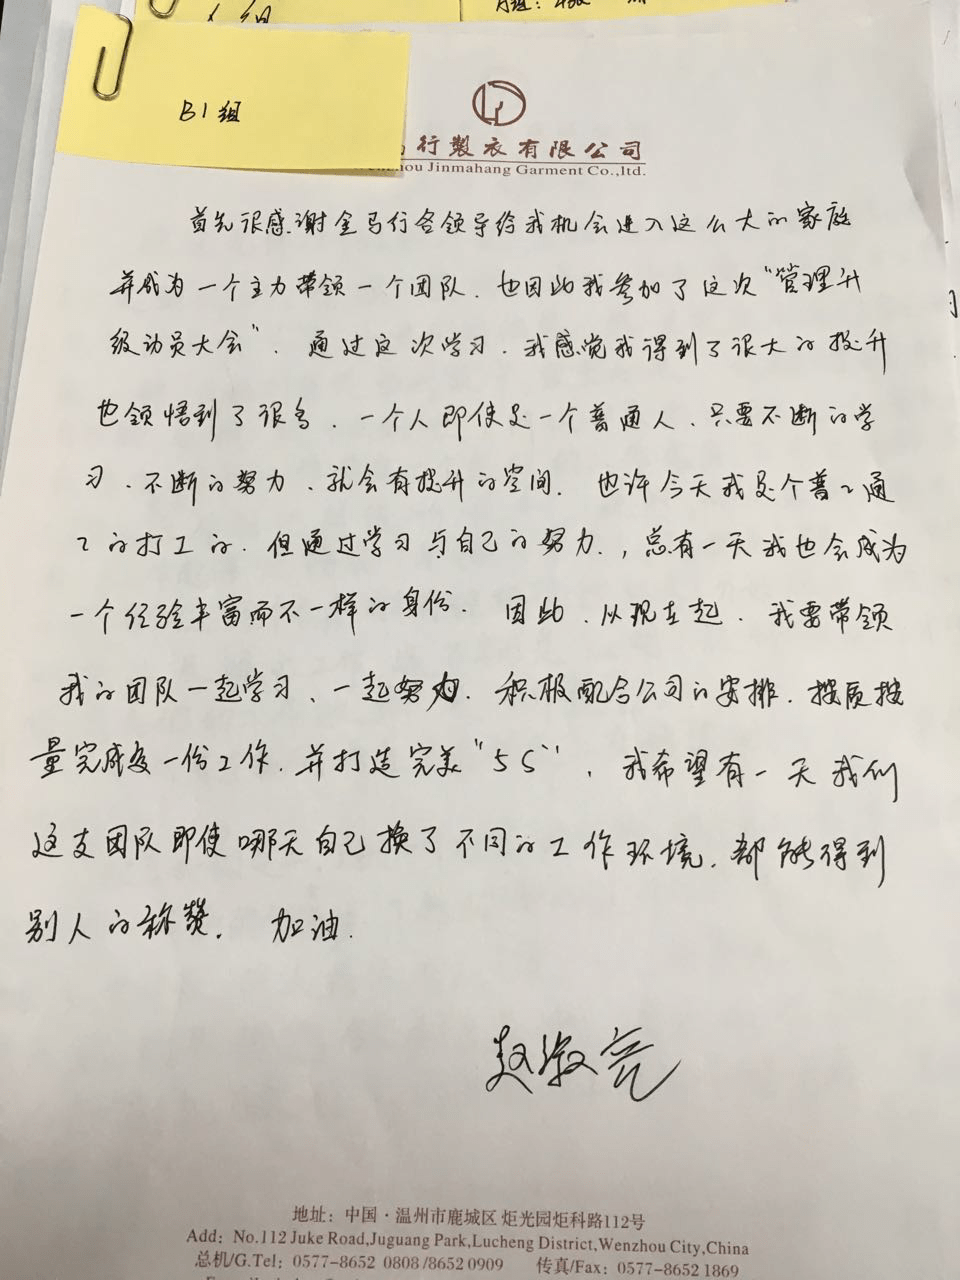 B1组
行製衣有限公司
Jinmahang Garment Co.,ltd.
首先很感谢金马行各领导给我机会进入这么大的家庭
并成为一个主力带领一个团队、也因此我参加了这次“管理升
级动员大会”、通过这次学习、我感觉我得到了很大的提升
也领悟到了很多、一个人即使是一个普通人、只要不断的学
习、不断的努力、就会有提升的空间. 也许今天我是个普通
的打工的、但通过学习与自己的努力、, 总有一天我也会成为
一个经验丰富而不一样的身份. 因此、从现在起、我要带领
我的团队一起学习、一起努力、积极配合公司的安排、按质按
量完成每一份工作、并打造完美“5S”、我希望有一天我们
这支团队即使哪天自己换了不同的工作环境、都能得到
别人的称赞. 加油.
赵
亮
地址：中国·温州市鹿城区炬光园炬科路112号
Add: No.112 Juke Road,Juguang Park,Lucheng District,Wenzhou City,China
总机/G.Tel: 0577-8652 0808 /8652 0909 传真/Fax: 0577-8652 1869